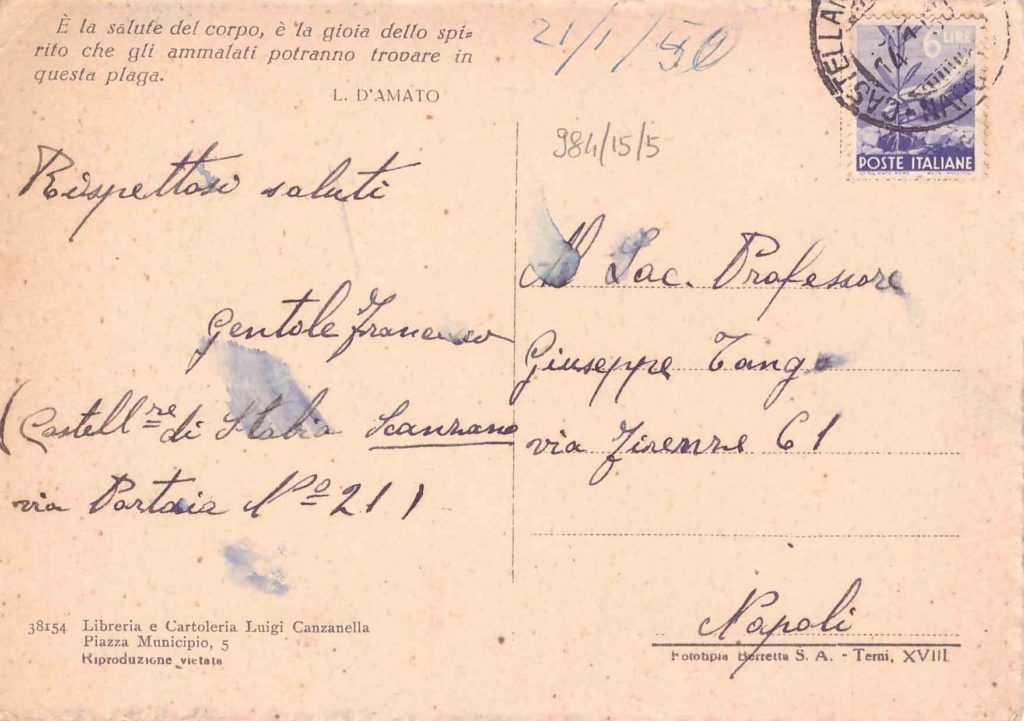 È la salute del corpo, è la gioia dello spi-
rito che gli ammalati potranno trovare in
questa plaga.
L. D'AMATO
21/1/50
984/15/5
6 LIRE
POSTE ITALIANE
CASTELLAM
NAPOLI
Rispettosi saluti
Gentole Francesco
(Castell.re di Stabia Scanzano
via Partaia N.o 21)
Al Sac. Professore
Giuseppe Tango
via Firenze 61
Napoli
38154 Libreria e Cartoleria Luigi Canzanella
Piazza Municipio, 5
Riproduzione vietata
Fototipia Berretta S. A. - Terni, XVIII